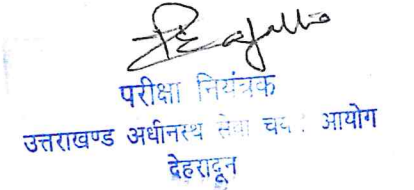 परीक्षा नियंत्रक
उत्तराखण्ड अधीनस्थ सेवा चय आयोग
देहरादून